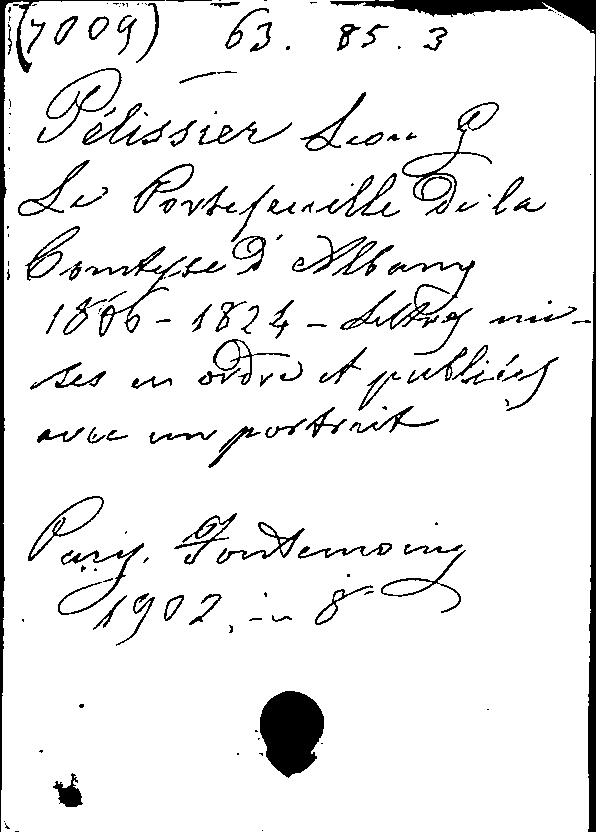 (7009) 63. 85. 3
Pélissier Léon G
Le Portefeuille de la
Comtesse d'Albany
1806-1824 - Lettres mi-
ses en ordre et publiées
avec un portrait
Paris. Fontemoing
1902, in 8°